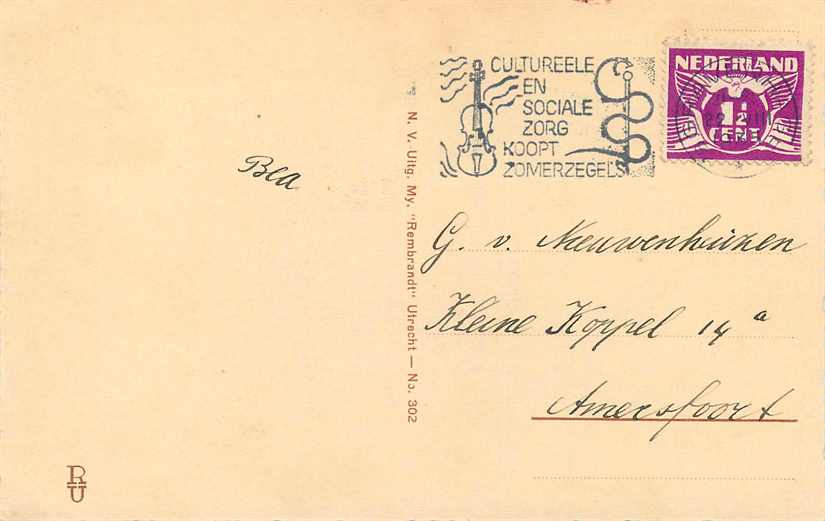 CULTUREELE
EN
SOCIALE
ZORG
KOOPT
ZOMERZEGELS
NEDERLAND
1½
CENT
Bea
N. V. Uitg. My. "Rembrandt" Utrecht — No. 302
G. v. Nieuwenhuizen
Kleine Koppel 14a
Amersfoort
RU